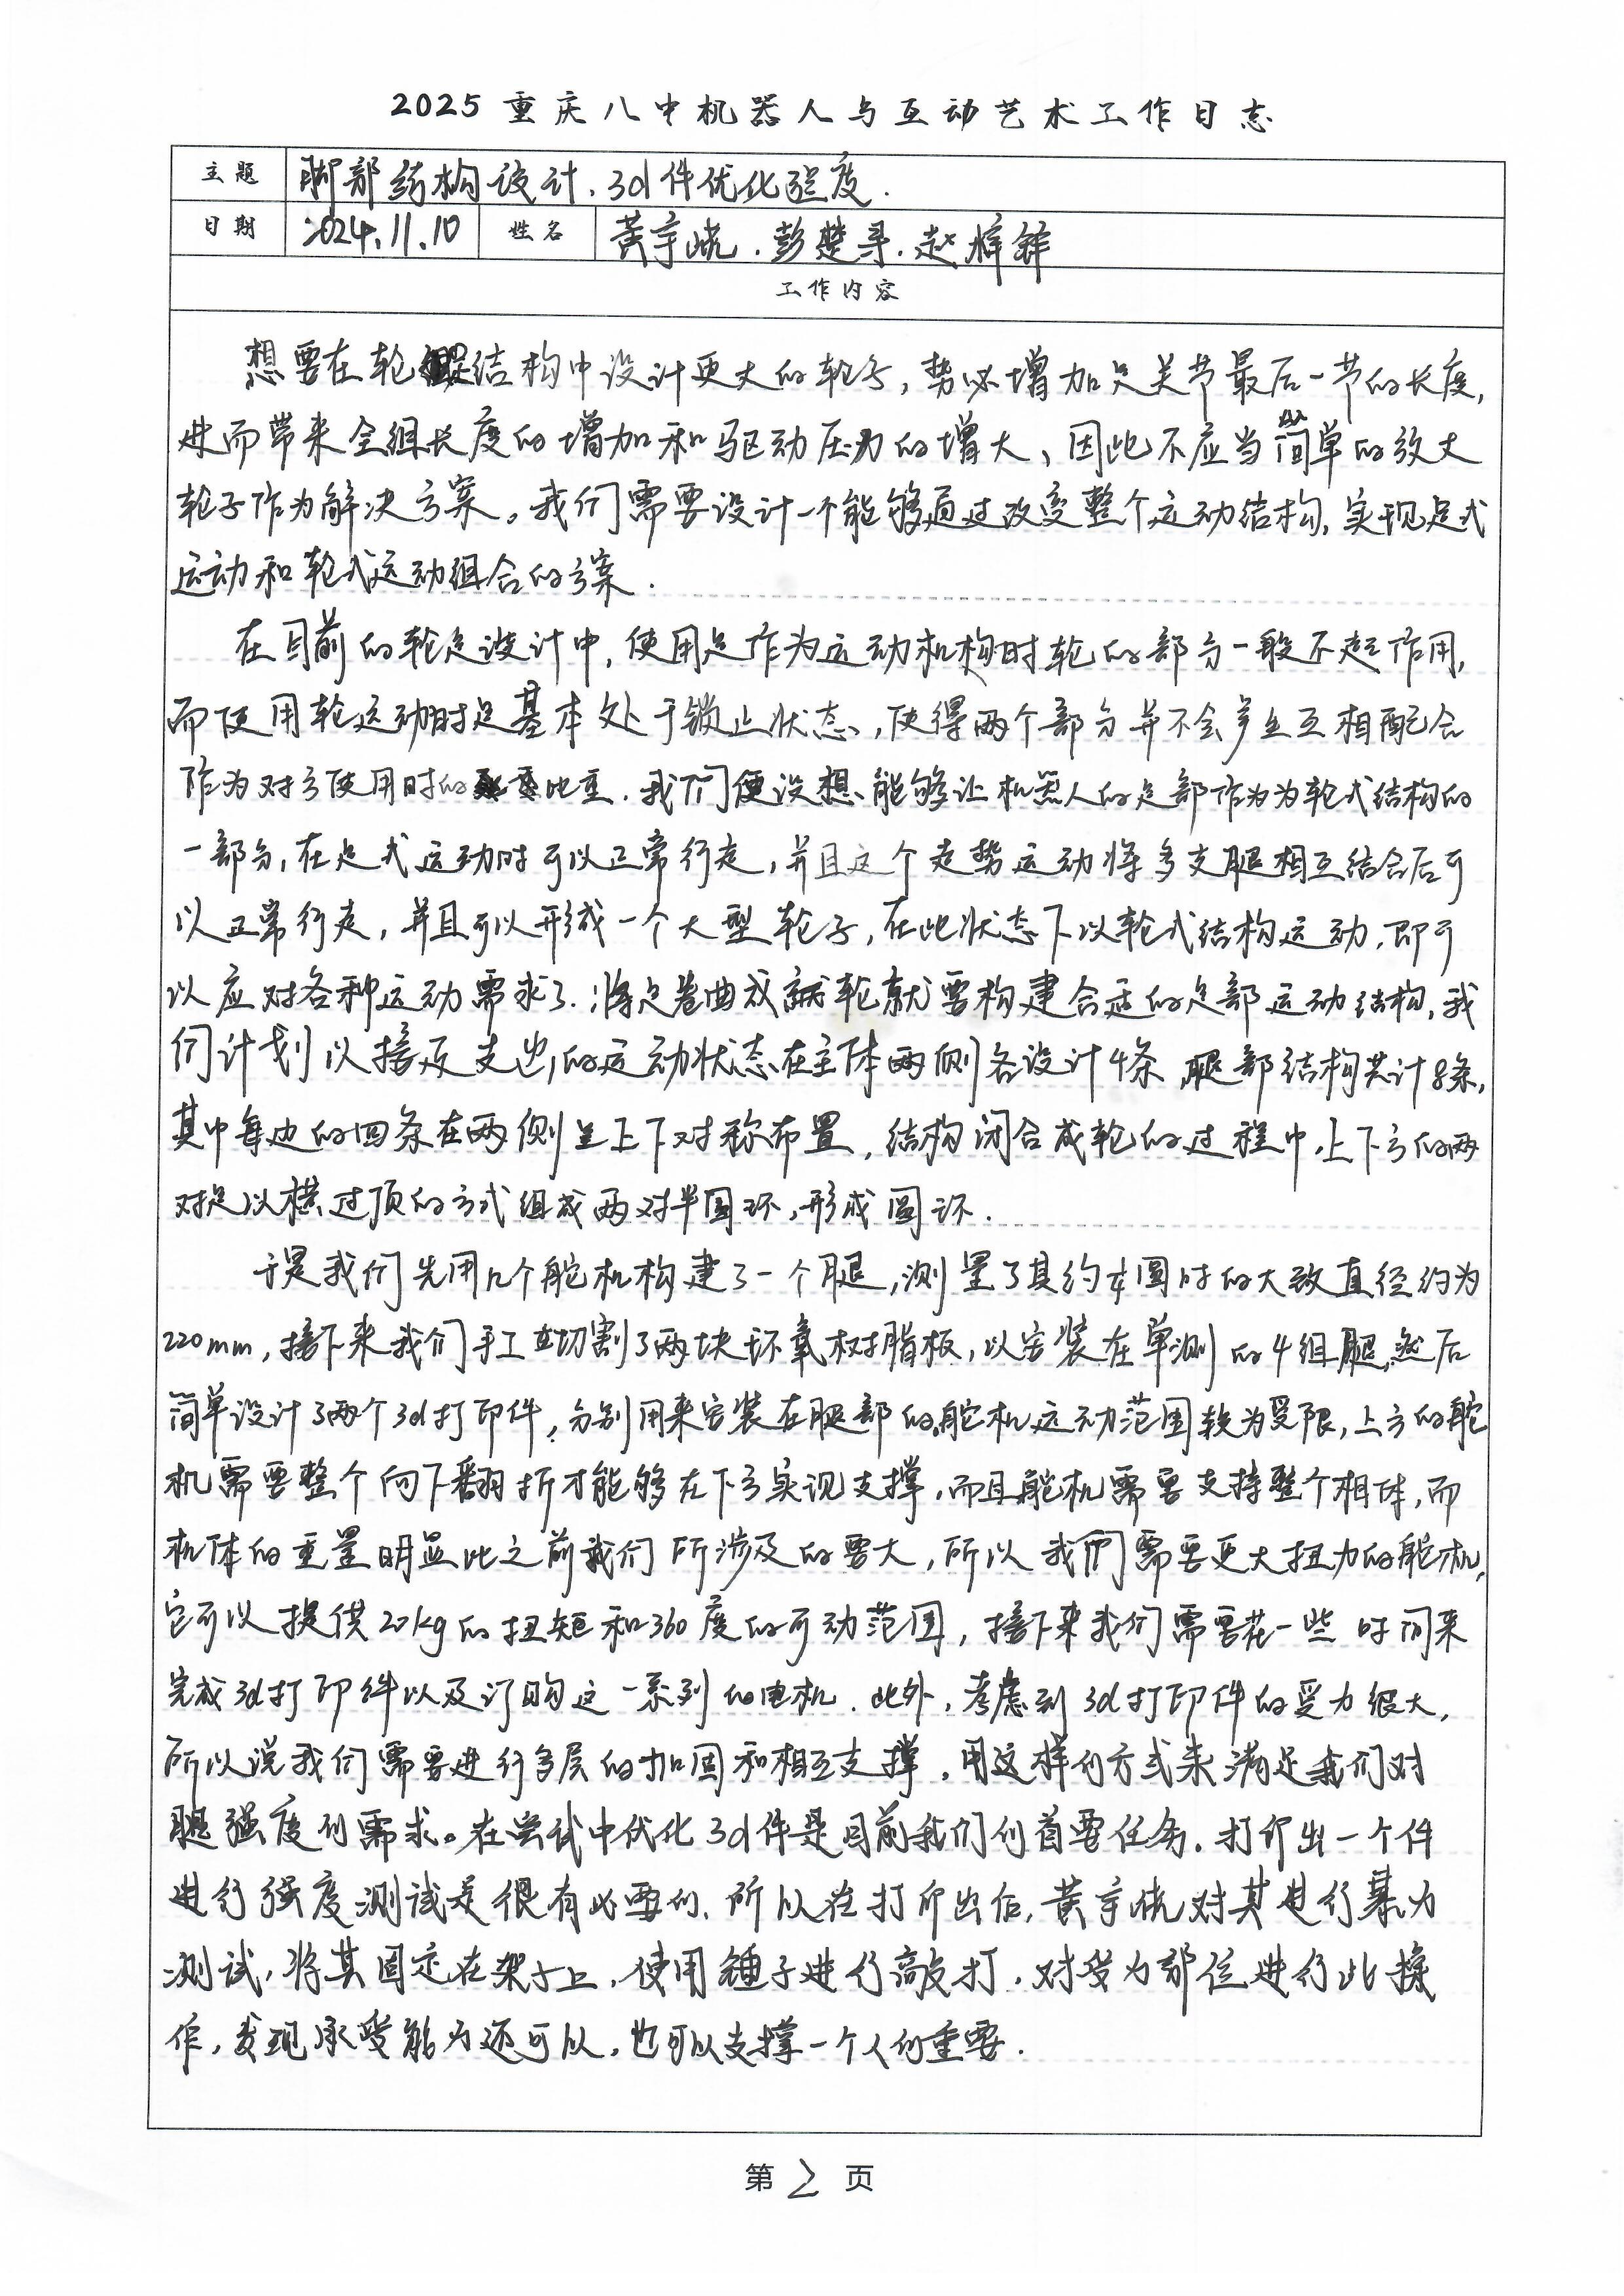 2025重庆八中机器人与互动艺术工作日志
主题 脚部结构设计、3d件优化强度.
日期 2024.11.10 姓名 黄宇晄.彭楚寻.赵梓铎
工作内容
想要在轮结构中设计更大的轮子，势必增加足关节最后一节的长度，
进而带来全组长度的增加和驱动压力的增大、因此不应当以简单的放大
轮子作为解决方案。我们需要设计一个能够通过改变整个运动结构，实现足式
运动和轮式运动组合的方案.
在目前的轮足设计中，使用足作为运动机构时轮的部分一般不起作用，
而使用轮运动时足基本处于锁止状态，使得两个部分并不会产生互相配合
作为对方使用时的比重.我们便设想能够让机器人的足部作为为轮式结构的
一部分，在足式运动时可以正常行走，并且这个走势运动将多支腿相互结合后可
以正常行走，并且可以形成一个大型轮子，在此状态下以轮式结构运动，即可
以应对各种运动需求了.将足卷曲成轮就要构建合适的足部运动结构，我
们计划以接近支出的运动状态在主体两侧各设计4条腿部结构共计8条，
其中每边的四条在两侧呈上下对称布置，结构闭合成轮的过程中，上下方的两
对足以横过顶的方式组成两对半圆环，形成圆环.
于是我们先用几个舵机构建了一个腿，测量了其约半圆时的大致直径约为
220mm，接下来我们手工切割了两块环氧树脂板，以安装在单测的4组腿，然后
简单设计了两个3d打印件，分别用来安装在腿部的舵机运动范围较为受限，上方的舵
机需要整个向下翻折才能够在下方实现支撑，而且舵机需要支持整个相体，而
机体的重量明显比之前我们所涉及的要大，所以我们需要更大扭力的舵机，
它可以提供20kg的扭矩和360度的可动范围，接下来我们需要花一些时间来
完成3d打印件以及订购这一系列的电机.此外，考虑到3d打印件的受力很大，
所以说我们需要进行多层的加固和相互支撑，用这样的方式来满足我们对
腿强度的需求。在尝试中优化3d件是目前我们的首要任务.打印出一个件
进行强度测试是很有必要的.所以在打印出后，黄宇晄对其进行暴力
测试，将其固定在架子上，使用锤子进行敲打，对受力部位进行此操
作，发现承受能力还可以，也可以支撑一个人的重要.
第2页